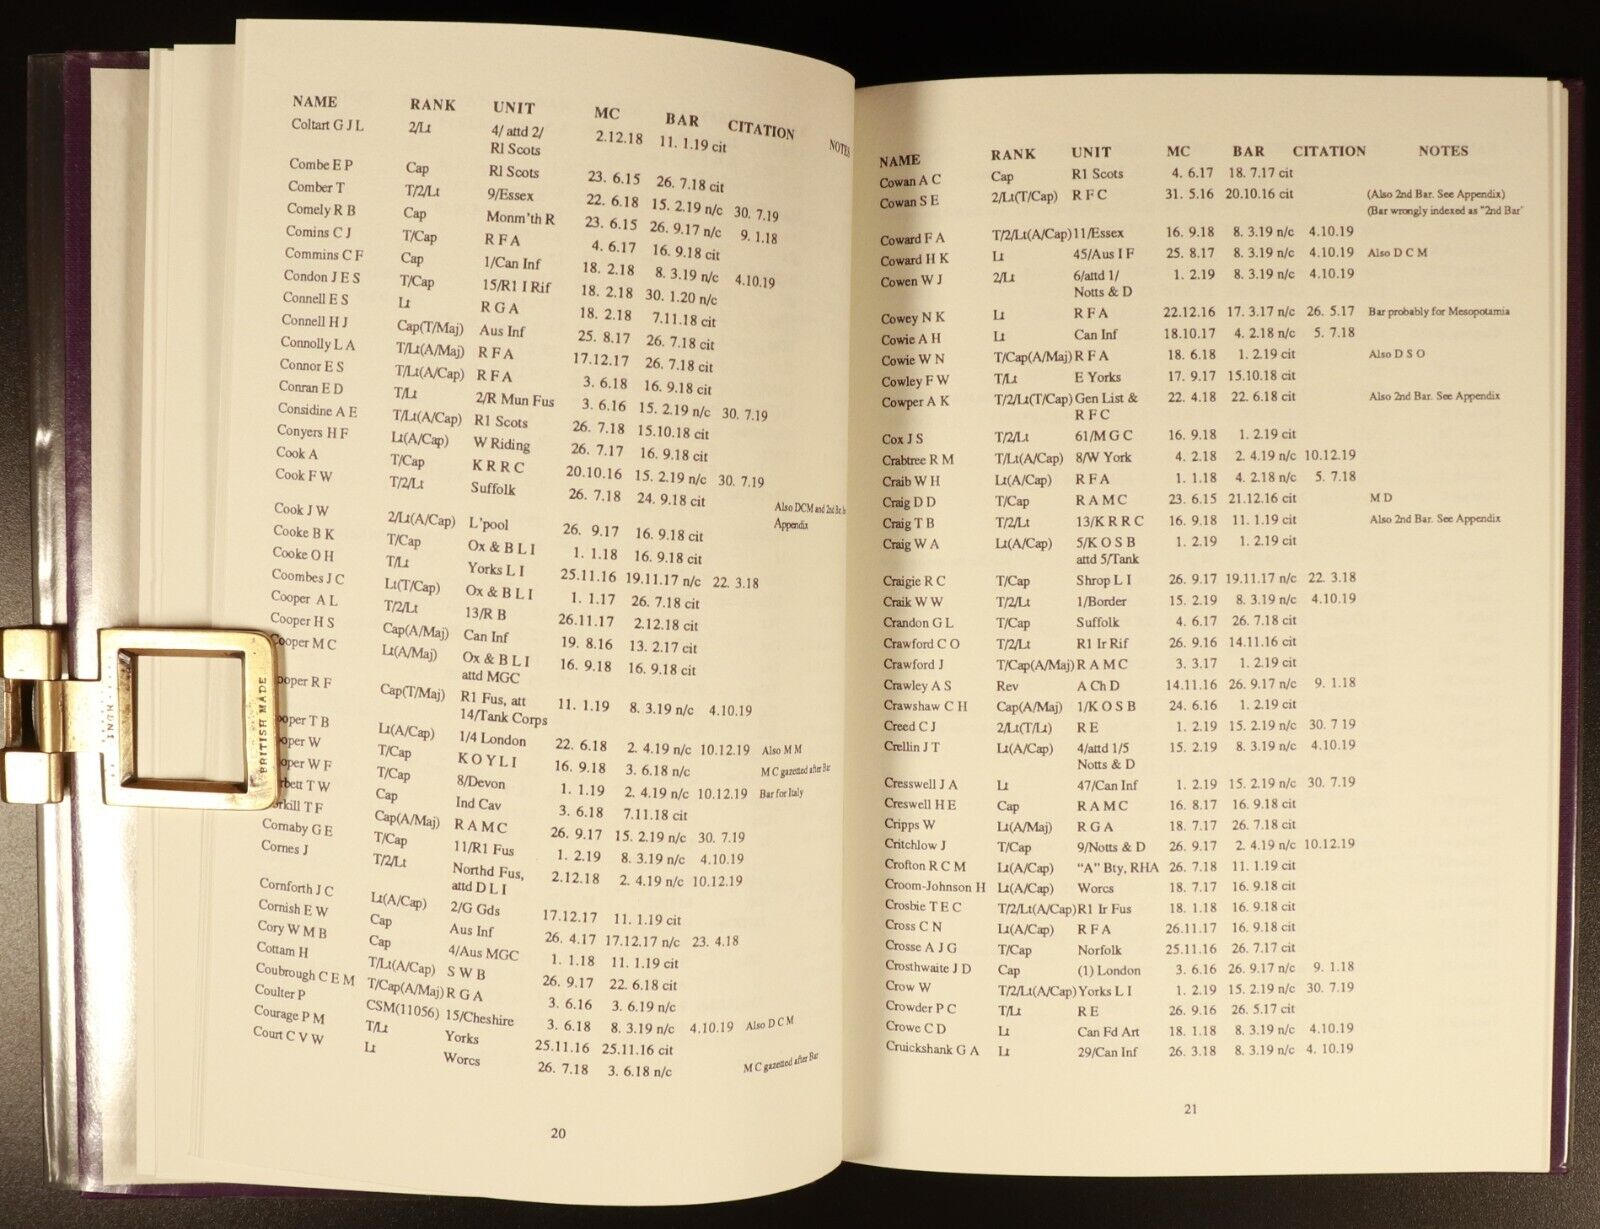 NAME RANK UNIT MC BAR CITATION NOTES
Coltart G J L 2/Lt 4/ attd 2/ 2.12.18 11. 1.19 cit
Rl Scots
Combe E P Cap Rl Scots 23. 6.15 26. 7.18 cit
Comber T T/2/Lt 9/Essex 22. 6.18 15. 2.19 n/c 30. 7.19
Comely R B Cap Monm'th R 23. 6.15 26. 9.17 n/c 9. 1.18
Comins C J T/Cap R F A 4. 6.17 16. 9.18 cit
Commins C F Cap 1/Can Inf 18. 2.18 8. 3.19 n/c 4.10.19
Condon J E S T/Cap 15/R1 I Rif 18. 2.18 30. 1.20 n/c
Connell E S Lt R G A 18. 2.18 7.11.18 cit
Connell H J Cap(T/Maj) Aus Inf 25. 8.17 26. 7.18 cit
Connolly L A T/Lt(A/Maj) R F A 17.12.17 26. 7.18 cit
Connor E S T/Lt(A/Cap) R F A 3. 6.18 16. 9.18 cit
Conran E D T/Lt 2/R Mun Fus 3. 6.16 15. 2.19 n/c 30. 7.19
Considine A E T/Lt(A/Cap) R1 Scots 26. 7.18 15.10.18 cit
Conyers H F Lt(A/Cap) W Riding 26. 7.17 16. 9.18 cit
Cook A T/Cap K R R C 20.10.16 15. 2.19 n/c 30. 7.19
Cook F W T/2/Lt Suffolk 26. 7.18 24. 9.18 cit Also DCM and 2nd Bar.
Appendix
Cook J W 2/Lt(A/Cap) L'pool 26. 9.17 16. 9.18 cit
Cooke B K T/Cap Ox & B L I 1. 1.18 16. 9.18 cit
Cooke O H T/Lt Yorks L I 25.11.16 19.11.17 n/c 22. 3.18
Coombes J C Lt(T/Cap) Ox & B L I 1. 1.17 26. 7.18 cit
Cooper A L T/2/Lt 13/R B 26.11.17 2.12.18 cit
Cooper H S Cap(A/Maj) Can Inf 19. 8.16 13. 2.17 cit
Cooper M C Lt(A/Maj) Ox & B L I 16. 9.18 16. 9.18 cit
attd MGC
ooper R F Cap(T/Maj) R1 Fus, att 11. 1.19 8. 3.19 n/c 4.10.19
14/Tank Corps
ooper T B Lt(A/Cap) 1/4 London 22. 6.18 2. 4.19 n/c 10.12.19 Also M M
oper W T/Cap K O Y L I 16. 9.18 3. 6.18 n/c M C gazetted after Bar
oper W F T/Cap 8/Devon 1. 1.19 2. 4.19 n/c 10.12.19 Bar for Italy
bett T W Cap Ind Cav 3. 6.18 7.11.18 cit
rkill T F Cap(A/Maj) R A M C 26. 9.17 15. 2.19 n/c 30. 7.19
Cornaby G E T/Cap 11/R1 Fus 1. 2.19 8. 3.19 n/c 4.10.19
Cornes J T/2/Lt Northd Fus, 2.12.18 2. 4.19 n/c 10.12.19
attd D L I
Cornforth J C Lt(A/Cap) 2/G Gds 17.12.17 11. 1.19 cit
Cornish E W Cap Aus Inf 26. 4.17 17.12.17 n/c 23. 4.18
Cory W M B Cap 4/Aus MGC 1. 1.18 11. 1.19 cit
Cottam H T/Lt(A/Cap) S W B 26. 9.17 22. 6.18 cit
Coubrough C E M T/Cap(A/Maj) R G A 3. 6.16 3. 6.19 n/c
Coulter P CSM(11056) 15/Cheshire 3. 6.18 8. 3.19 n/c 4.10.19 Also D C M
Courage P M T/Lt Yorks 25.11.16 25.11.16 cit
Court C V W Lt Worcs 26. 7.18 3. 6.18 n/c M C gazetted after Bar
20
BRITISH MADE
NAME RANK UNIT MC BAR CITATION NOTES
Cowan A C Cap R1 Scots 4. 6.17 18. 7.17 cit
Cowan S E 2/Lt(T/Cap) R F C 31. 5.16 20.10.16 cit (Also 2nd Bar. See Appendix)
(Bar wrongly indexed as "2nd Bar"
Coward F A T/2/Lt(A/Cap) 11/Essex 16. 9.18 8. 3.19 n/c 4.10.19
Coward H K Lt 45/Aus I F 25. 8.17 8. 3.19 n/c 4.10.19 Also D C M
Cowen W J 2/Lt 6/attd 1/ 1. 2.19 8. 3.19 n/c 4.10.19
Notts & D
Cowey N K Lt R F A 22.12.16 17. 3.17 n/c 26. 5.17 Bar probably for Mesopotamia
Cowie A H Lt Can Inf 18.10.17 4. 2.18 n/c 5. 7.18
Cowie W N T/Cap(A/Maj) R F A 18. 6.18 1. 2.19 cit Also D S O
Cowley F W T/Lt E Yorks 17. 9.17 15.10.18 cit
Cowper A K T/2/Lt(T/Cap) Gen List & 22. 4.18 22. 6.18 cit Also 2nd Bar. See Appendix
R F C
Cox J S T/2/Lt 61/M G C 16. 9.18 1. 2.19 cit
Crabtree R M T/Lt(A/Cap) 8/W York 4. 2.18 2. 4.19 n/c 10.12.19
Craib W H Lt(A/Cap) R F A 1. 1.18 4. 2.18 n/c 5. 7.18
Craig D D T/Cap R A M C 23. 6.15 21.12.16 cit M D
Craig T B T/2/Lt 13/K R R C 16. 9.18 11. 1.19 cit Also 2nd Bar. See Appendix
Craig W A Lt(A/Cap) 5/K O S B 1. 2.19 1. 2.19 cit
attd 5/Tank
Craigie R C T/Cap Shrop L I 26. 9.17 19.11.17 n/c 22. 3.18
Craik W W T/2/Lt 1/Border 15. 2.19 8. 3.19 n/c 4.10.19
Crandon G L T/Cap Suffolk 4. 6.17 26. 7.18 cit
Crawford C O T/2/Lt R1 Ir Rif 26. 9.16 14.11.16 cit
Crawford J T/Cap(A/Maj) R A M C 3. 3.17 1. 2.19 cit
Crawley A S Rev A Ch D 14.11.16 26. 9.17 n/c 9. 1.18
Crawshaw C H Cap(A/Maj) 1/K O S B 24. 6.16 1. 2.19 cit
Creed C J 2/Lt(T/Lt) R E 1. 2.19 15. 2.19 n/c 30. 7.19
Crellin J T Lt(A/Cap) 4/attd 1/5 15. 2.19 8. 3.19 n/c 4.10.19
Notts & D
Cresswell J A Lt 47/Can Inf 1. 2.19 15. 2.19 n/c 30. 7.19
Creswell H E Cap R A M C 16. 8.17 16. 9.18 cit
Cripps W Lt(A/Maj) R G A 18. 7.17 26. 7.18 cit
Critchlow J T/Cap 9/Notts & D 26. 9.17 2. 4.19 n/c 10.12.19
Crofton R C M Lt(A/Cap) "A" Bty, RHA 26. 7.18 11. 1.19 cit
Croom-Johnson H Lt(A/Cap) Worcs 18. 7.17 16. 9.18 cit
Crosbie T E C T/2/Lt(A/Cap) R1 Ir Fus 18. 1.18 16. 9.18 cit
Cross C N Lt(A/Cap) R F A 26.11.17 16. 9.18 cit
Crosse A J G T/Cap Norfolk 25.11.16 26. 7.17 cit
Crosthwaite J D Cap (1) London 3. 6.16 26. 9.17 n/c 9. 1.18
Crow W T/2/Lt(A/Cap) Yorks L I 1. 2.19 15. 2.19 n/c 30. 7.19
Crowder P C T/Lt R E 26. 9.16 26. 5.17 cit
Crowe C D Lt Can Fd Art 18. 1.18 8. 3.19 n/c 4.10.19
Cruickshank G A Lt 29/Can Inf 26. 3.18 8. 3.19 n/c 4. 10.19
21